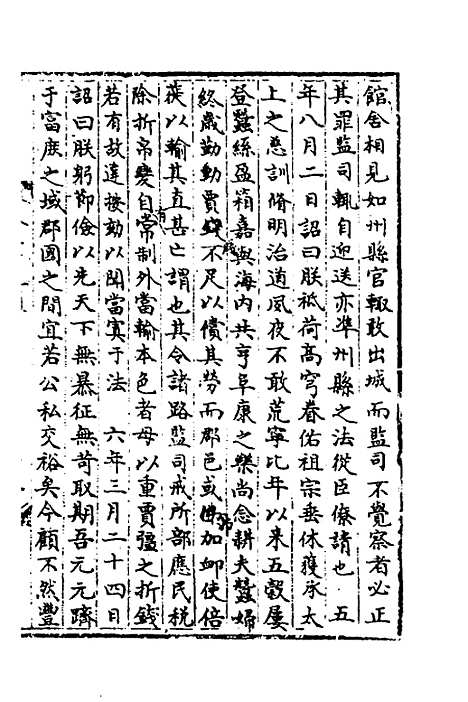 館舍相見如州縣官輙敢出城而監司不覺察者必正
其罪監司輒自迎送亦準州縣之法從臣僚請也　五
年八月二日詔曰朕祗荷高穹眷佑祖宗垂休獲承太
上之慈訓脩明治道夙夜不敢荒寧比年以來五穀屢
登蠶絲盈箱嘉與海内共亨阜康之樂尚念耕夫蠶婦
終歲勤動賈賤不足以償其勞而郡邑或弗加䘏使倍
蓰以輸其直甚亡謂也其令諸路監司戒所部應民税
除折帛變自有常制外當輸本色者毋以重賈彊之折錢
若有故違按劾以聞當寘于法　六年三月二十四日
詔曰朕躬節儉以先天下無暴征無苛取期吾元元躋
于富庶之域郡國之間宜若公私交裕矣今顧不然豐